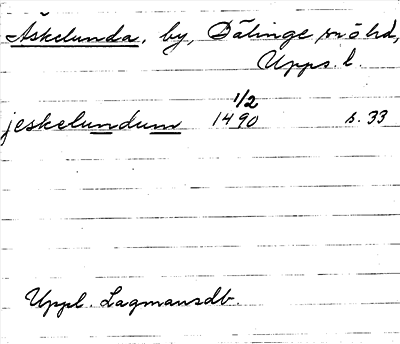 Äskelunda, by, Dälinge sn ö hd,
Upps. l.
1/2
jeskelundum 1490 s. 33
Uppl. Lagmansdb.